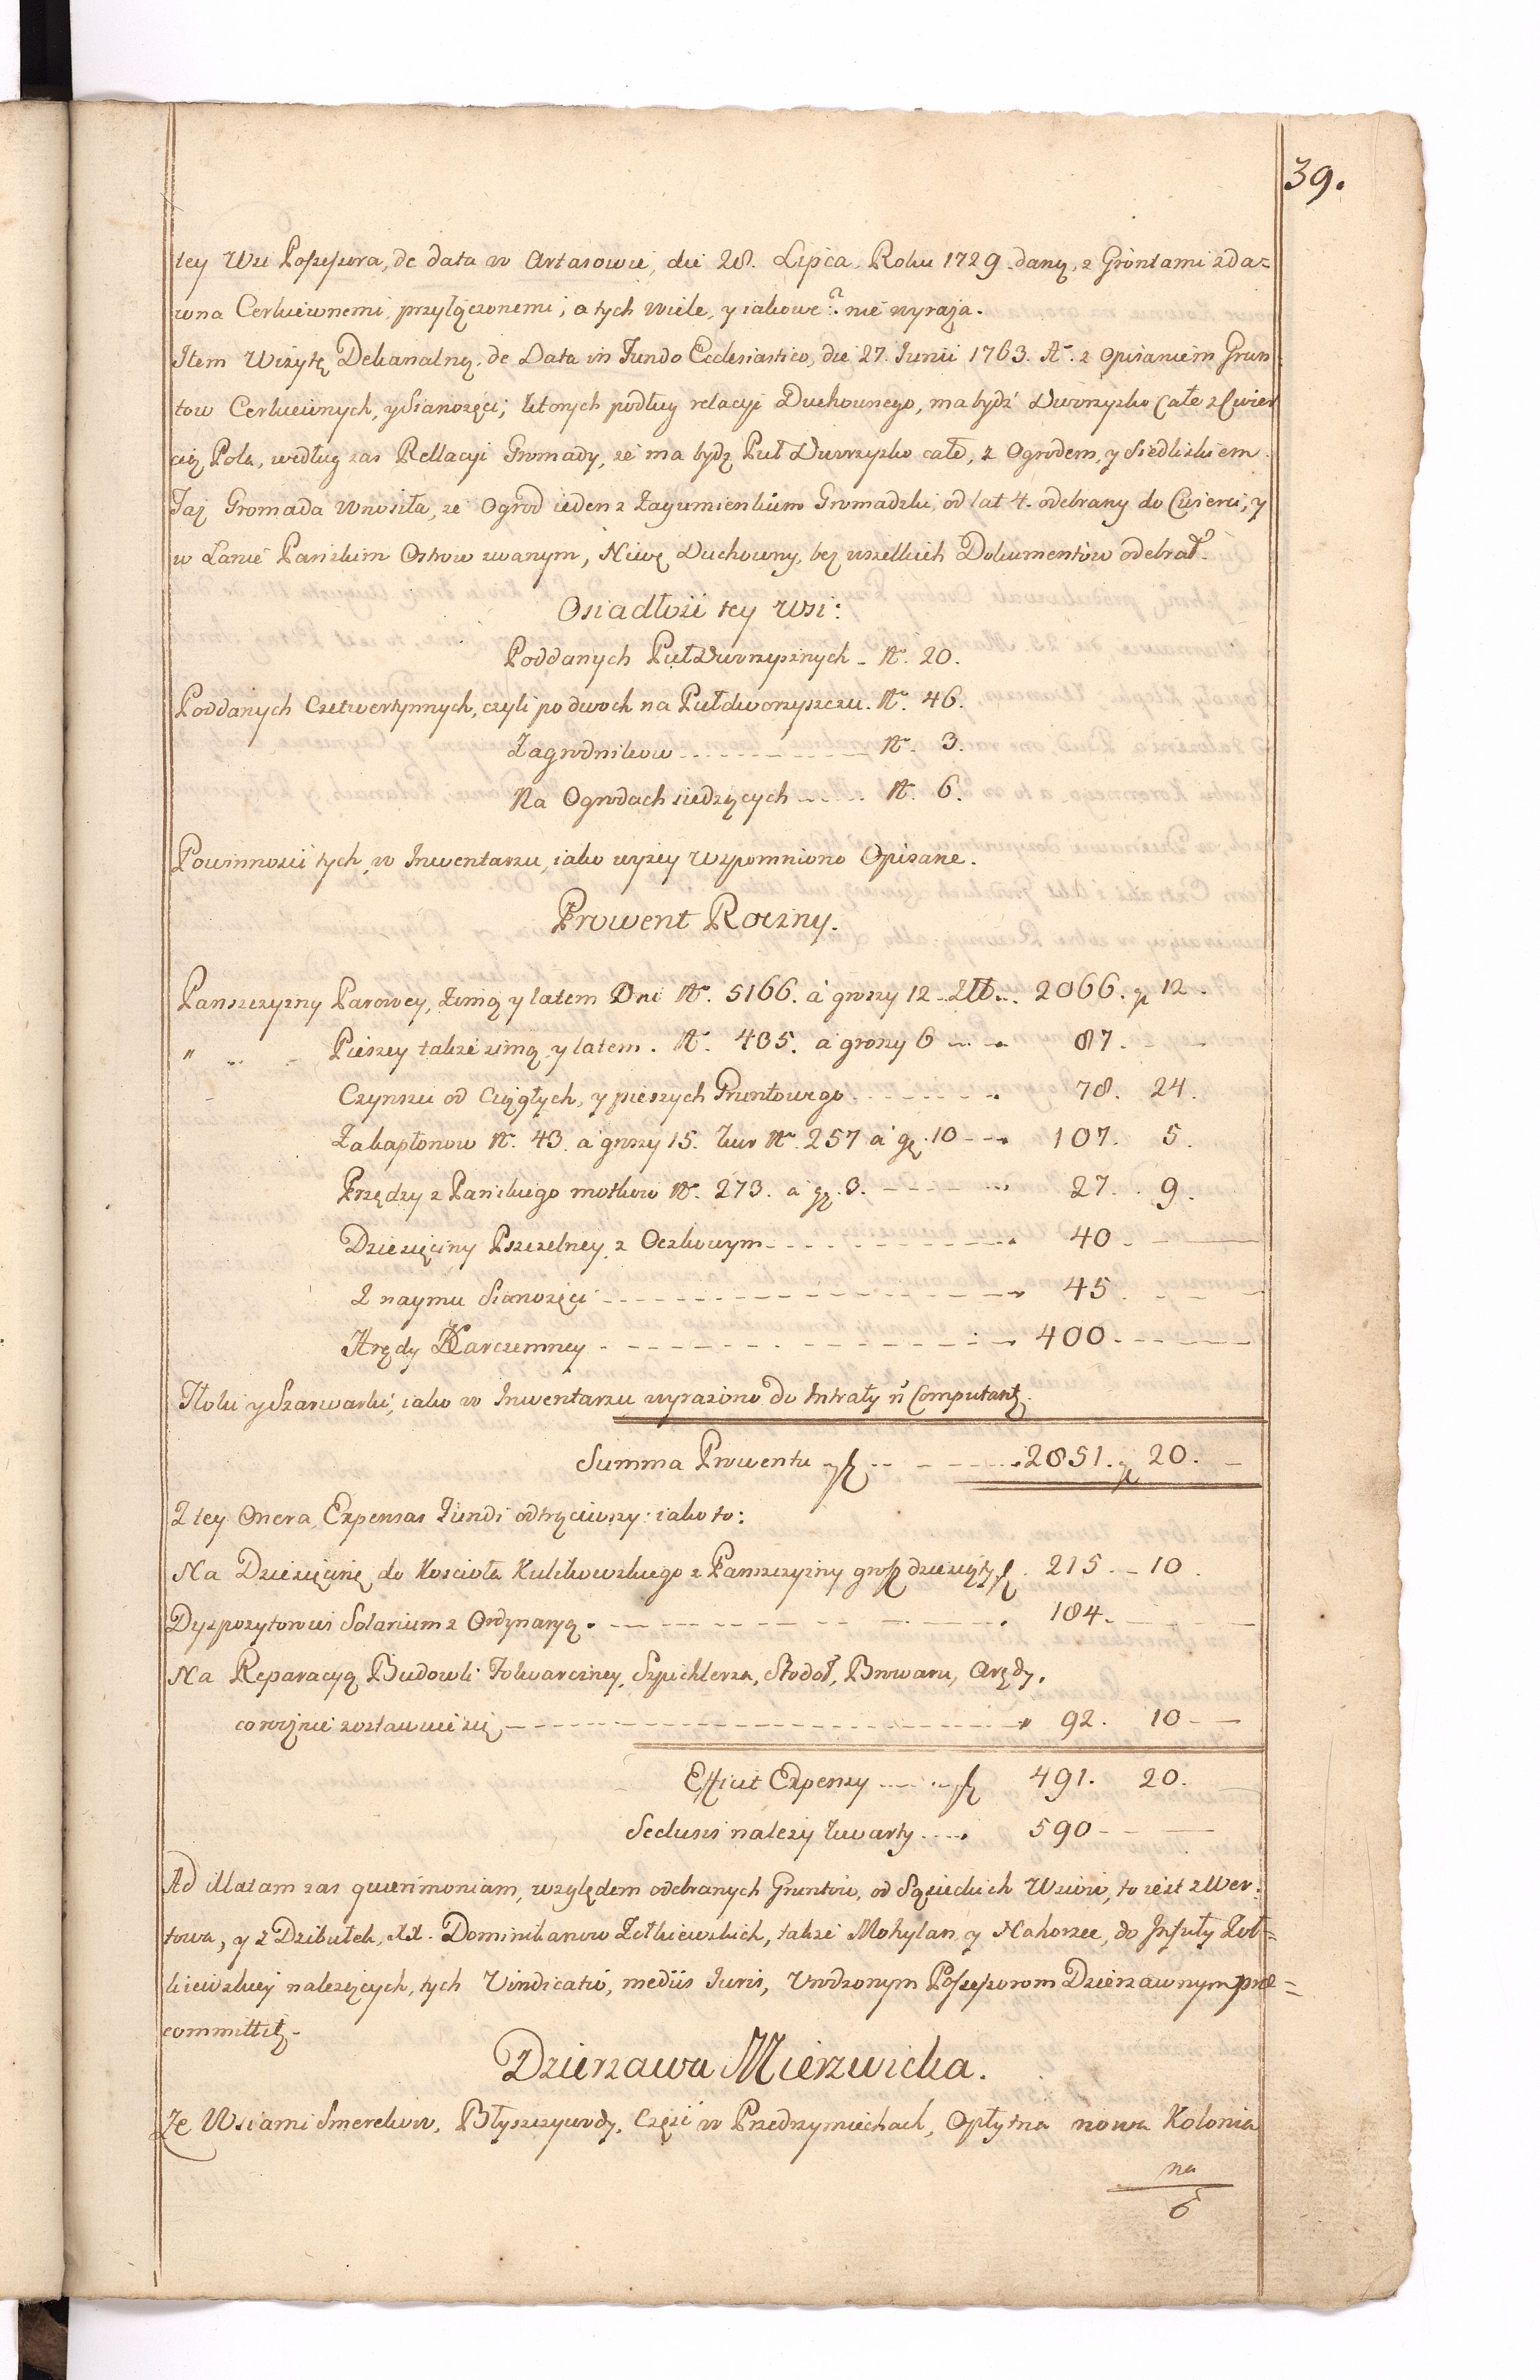 39.
tey Wsi Possessora, de data w Artasowie, die 28. Lipca. Roku 1729. daną, z Gróntami zda=
wna Cerkiewnemi, przyłączonemi; a tych wiele, y iakowe? nie wyraża.
Item Wizytę Dekanalną, de Data in Fundo Ecclesiastico, die 27. Iunii 1763. Aº. z Opisaniem Grun
tow Cerkiewnych, y Sianożęci; ktorych podług relacyi Duchownego, ma bydź Dworzysko Całe z Cwier
cią Pola, według zas Rellacyi Gromady, że ma bydź Puł Dworzysko całe, z Ogrodem, y Siedliskiem.
Taż Gromada Wnosiła, że Ogrod ieden z Zagumienkiem Gromadzki, od lat 4. odebrany do Cwierci, y
w Łanie Pańskim Ostrow zwanym, Niwę Duchowny, bez wszelkich Dokumentów odebrał.
Osiadłość tey Wsi:
Poddanych Puł Dworzysznych - Nº. 20.
Poddanych Czetwertynnych, czyli po dwoch na Pułdworzyszczu. Nº. 46.
Zagrodnikow - - - Nº. 3.
Na Ogrodach siedzących - - - Nº. 6.
Powinności tych, w Inwentarzu, iako wyżey Wspomniono Opisane.
Prowent Roczny.
Panszczyzny Parowey, Zimą y latem Dni Nº. 5166. á groszy 12 - Złt... 2066. gr 12.
" - - Pieszey także zimą y latem. Nº. 435. á groszy 6 - - - 87. - -
Czynszu od Ciągłych, y pieszych Gruntowego - - - 78. 24.
Za kapłonow Nº. 43. á groszy 15. kur Nº. 257 á gr. 10 - - - 107. 5.
Przędzy z Pańskiego motkow Nº. 273. á gr. 3. - - - 27. 9.
Dziesięciny Pszczelney z Oczkowym - - - 40. - -
Z naymu Sianożęci - - - 45. - -
Arędy Karczemney - - - 400. - -
Tłoki y Szarwarki, iako w Inwentarzu wyrażono do Intraty ñ Computant.
Summa Prowentu zł - - - 2851. gr 20. -
Z tey Onera, Expensas Fundi odtrąciwszy: iako to:
Na Dziesięcinę do Kościoła Kulikowskiego z Panszczyzny grosz dziesiąty zł. 215. - 10.
Dyspozytorowi Solarium z Ordynaryą. - - - 184. - -
Na Reparacyą Budowli Folwarczney, Szpichlerza, Stodoł, Browaru, Arędy,
corocznie zostawuie się - - - 92. 10 - -
Efficit Expensy - - - zł 491. 20.
Seclusis należy kwarty - - - 590 - -
Ad illatam zas querimoniam, względem odebranych Gruntów, od Sąsiedzkich Wsiów, to iest z Wer=
towa, y z Dzibułek, XX. Dominikanow Żołkiewskich, także Mohylan, y Nahorzec, do Infuły Żoł=
kiewskiey należących, tych Vindicatio, mediis Iuris, Urodzonym Possessorom Dzierżawnym præ=
committit.
Dzierżawa Mierzwicka.
Ze Wsiami Smerekow, Błyszczywody, Część w Przedrzymiechach, Opłytna nowa Kolonia
na
6